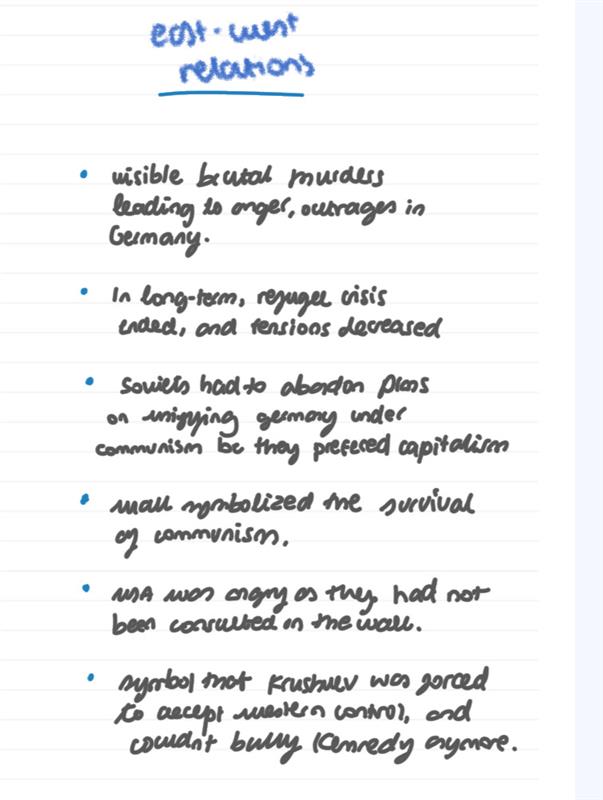 east-west
relations
• visible brutal murders
leading to anger, outrages in
Germany.
• In long-term, refugee crisis
ended, and tensions decreased
• Soviets had to abandon plans
on unifying germany under
communism bc they prefered capitalism
• wall symbolized the survival
of communism.
• USA was angry as they had not
been consulted on the wall.
• symbol that Krushev was forced
to accept western control, and
couldn't bully Kennedy anymore.